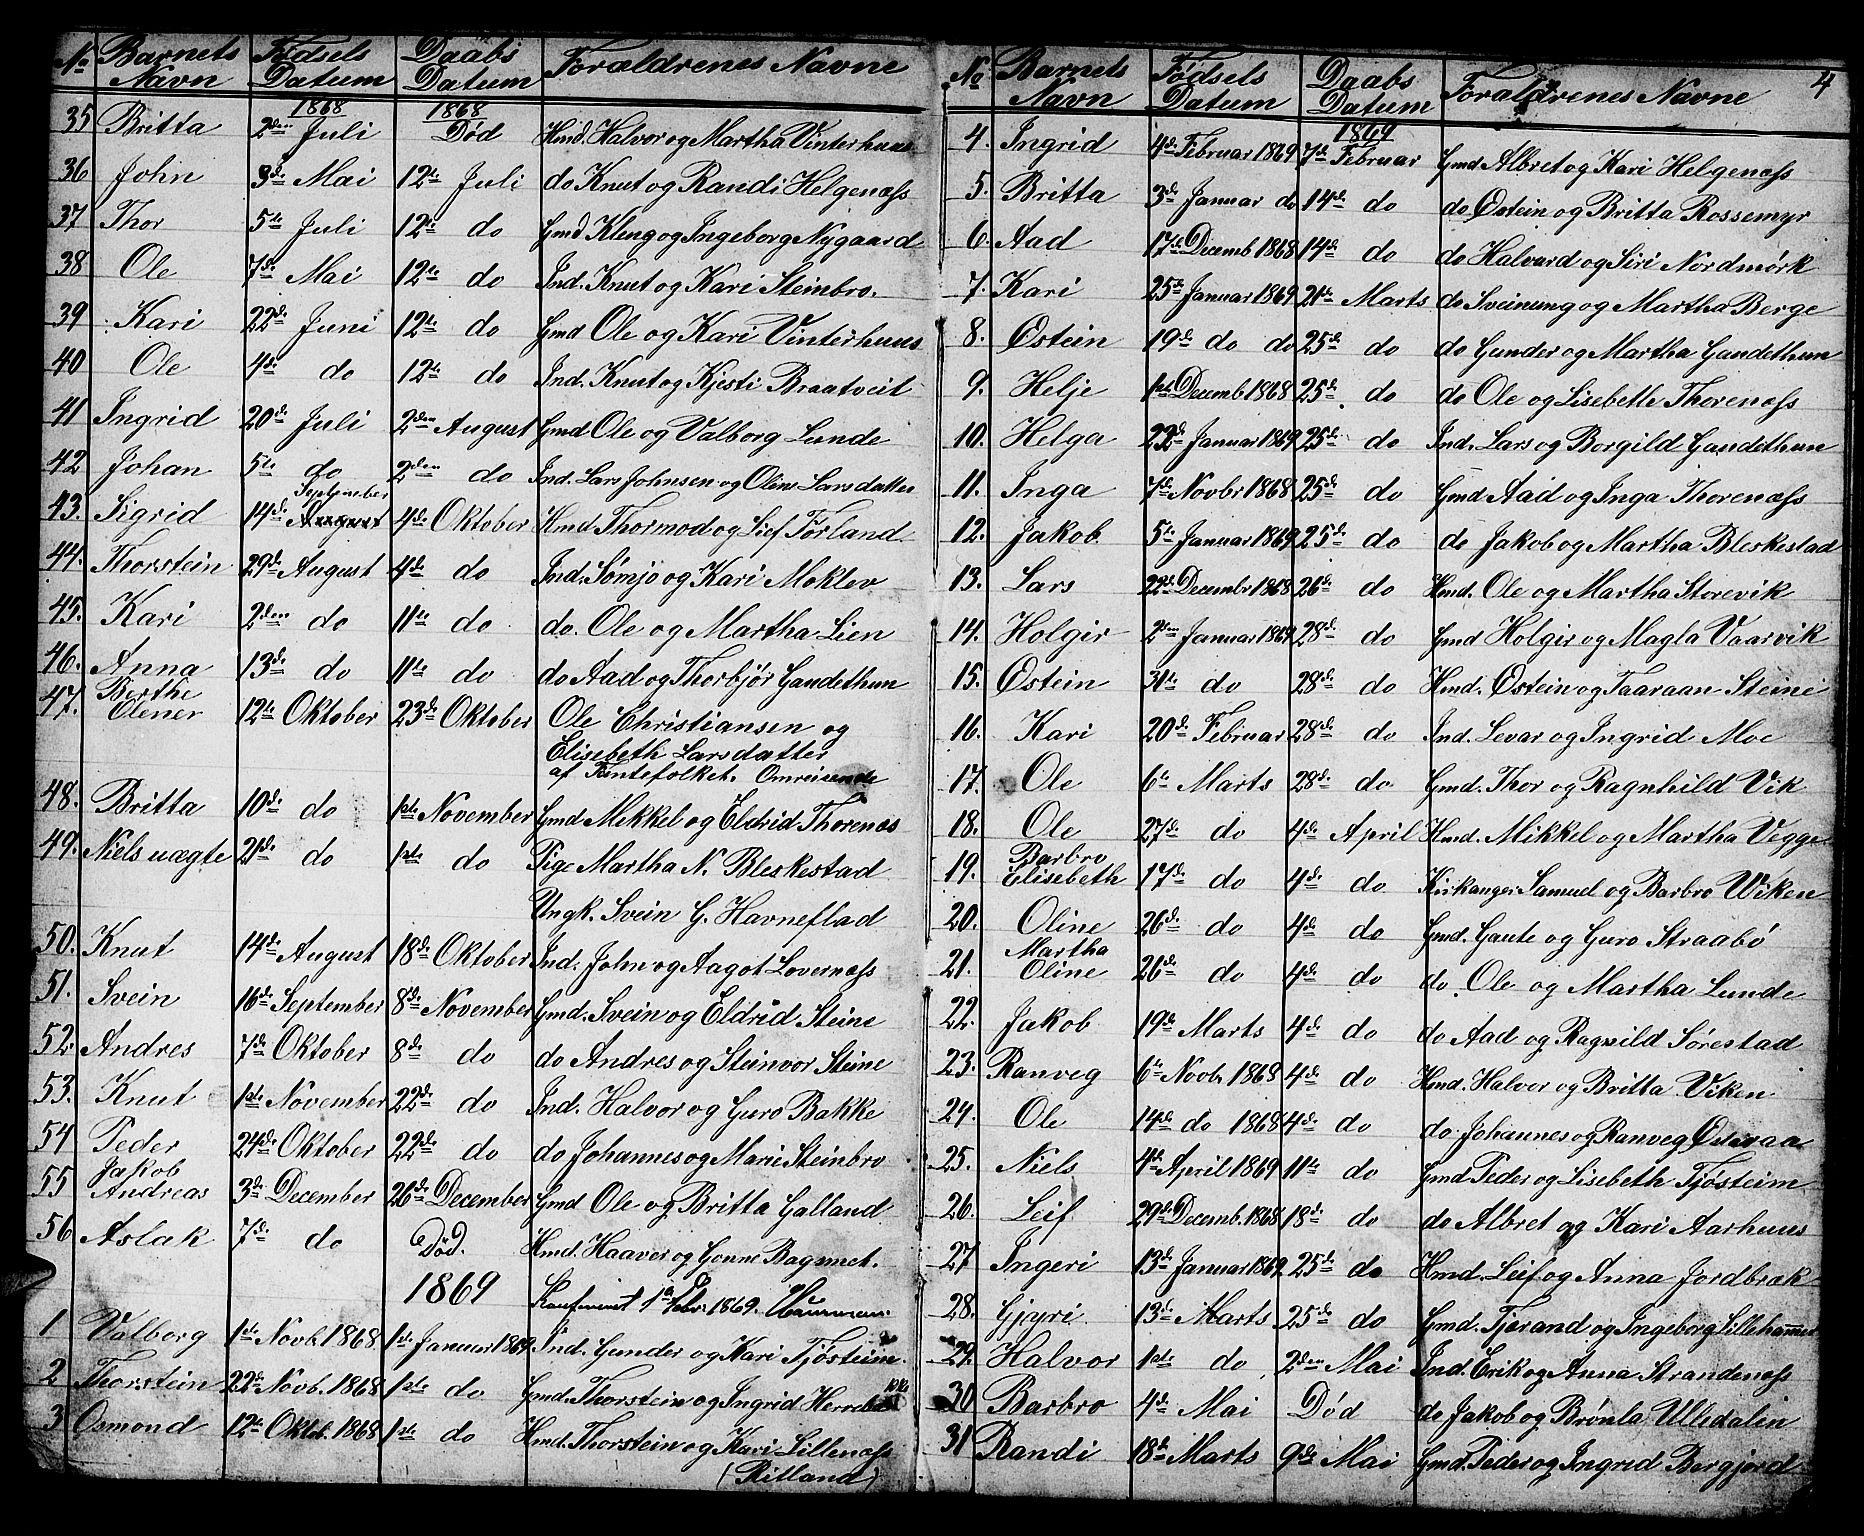 No Barnets Navn Fødsels Datum Daabs Datum Forældrenes Navne
1868 1868
35 Britta 2den Juli Død Hmd. Halvor og Martha Vinterhuus
36 John 3de Mai 12te Juli do Knut og Randi Helgenæss
37 Thor 5te Juli 12te do Gmd Kleng og Ingeborg Nygaard
38 Ole 7de Mai 12te do Ind. Knut og Kari Steinbro.
39 Kari 22de Juni 12te do Gmd Ole og Kari Vinterhuus
40 Ole 4de do 12te do Ind. Knut og Kjesti Braatveit
41 Ingrid 20de Juli 2den August Gmd Ole og Valborg Lunde
42 Johan 5te do 2den do Ind. Lars Johnsen og Oline Larsdatter
September
43. Sigrid 14de August 4de Oktober Hmd. Thormod og Lief Førland
44. Thorstein 29de August 4de do Ind. Sømjo og Kari Moklev
45. Kari 2den do 11te do do. Ole og Martha Lien
46. Anna 13de do 11te do do Aad og Thorbjør Gaudethun
47. Berthe Elener 12te Oktober 23de Oktober Ole Christiansen og
Elisebeth Larsdatter
af Fantefolket. Omreisende
48. Britta 10de do 1ste November Gmd Mikkel og Eldrid Thorenæs
49. Niels uægte 21de do 1ste do Pige Martha N. Bleskestad
Ungk. Svein G. Havneflad
50. Knut 14de August 18de Oktober Ind. John og Aagot Lovernæss
51. Svein 16de September 8de November Gmd. Svein og Eldrid Steine
52. Andres 7de Oktober 8de do do Andres og Steinvor Steine
53. Knut 1ste November 22de do Ind. Halvor og Guro Bakke
54 Peder 24de Oktober 22de do do Johannes og Marie Steinbro
55 Jakob Andreas 3de December 26de December Gmd Ole og Britta Galland
56 Aslak 7de do Død. Hmd. Haaver og Gonne
1869 1869.
1 Valborg 1ste Novb. 1868 1ste Januar 1869 Ind. Gunder og Kari Tjøsteim
2 Thorstein 22de Novb. 1868 1ste do Gmd. Thorstein og Ingrid
3 Osmond 12te Oktob. 1868 1ste do Hmd. Thorstein og Kari Lillenæss
(Ritland)
4
No Barnets Navn Fødsels Datum Daabs Datum Forældrenes Navne
1869
4. Ingrid 4de Februar 1869 7de Februar Gmd Albret og Kari Helgenæss
5. Britta 3de Januar do 14de do do Østein og Britta Rossemyr
6. Aad 17de Decemb 1868 14de do do Halvard og Siri Nordmørk
7. Kari 25te Januar 1869 21de Marts do Sveinung og Martha Berge
8. Østein 19de do do 25de do do Gunder og Martha Gaudethun
9. Helje 1ste Decemb 1868 25de do do Ole og Lisebeth Thorenæss
10. Helga 22de Januar 1869 25de do Ind. Lars og Borgild Gaudethun
11. Inga 7de Novbr 1868 25de do Gmd Aad og Inga Thorenæss
12. Jakob 5te Januar 1869 25de do do Jakob og Martha Bleskestad
13. Lars 22de Decembr 1868 26de do Hmd. Ole og Martha Storevik
14. Holgir 2den Januar 1869 28de do Gmd Holgir og Magla Vaarvik
15. Østein 31te do 28de do Hmd. Østein og Taaraan Steine
16. Kari 20de Februar 28de do Ind. Levar og Ingrid Moe
17. Ole 6te Marts 28de do Gmd. Thor og Ragnhild Vik
18. Ole 27de do 4de April Hmd. Mikkel og Martha Vegge
19. Barbro Elisebeth 17de do 4de do Kirkesanger Samuel og Barbro Viken
20. Oline 26de do 4de do Gmd. Gaute og Guro Straabø
21. Martha Oline 26de do 4de do do. Ole og Martha Lunde
22. Jakob 19de Marts 4de do do Aad og Ragnild Sørestad
23. Ranveg 6te Novb. 1868 4de do Hmd. Halvor og Britta Viken
24. Ole 14de do 1868 4de do do Johannes og Ranveg Østeraa
25. Niels 4de April 1869 11te do Gmd Peder og Lisebeth Tjøsteim
26. Leif 29de Decemb. 1868 18de do do Albret og Kari Aarhuus
27 Ingeri 13de Januar 1869 25de do Hmd. Leif og Anna Jordbræk
28. Gjyri 13de Marts 25de do Gmd. Tjerand og Ingeborg Lillehammer
29. Halvor 1ste do 2den Mai Ind. Erik og Anna Strandenæss
30 Barbro 4de Mai Død do Jakob og Brønla Ulledalen
31 Randi 18de Marts 9de Mai Gmd. Peder og Ingrid Bergjord